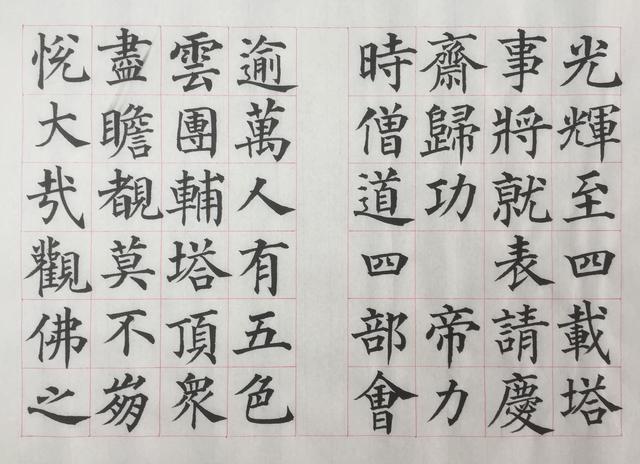 光輝至四載塔
事將就表請慶
齋歸功 帝力
時僧道四部會
逾萬人有五色
雲團輔塔頂眾
盡瞻覩莫不崩
悅大哉觀佛之